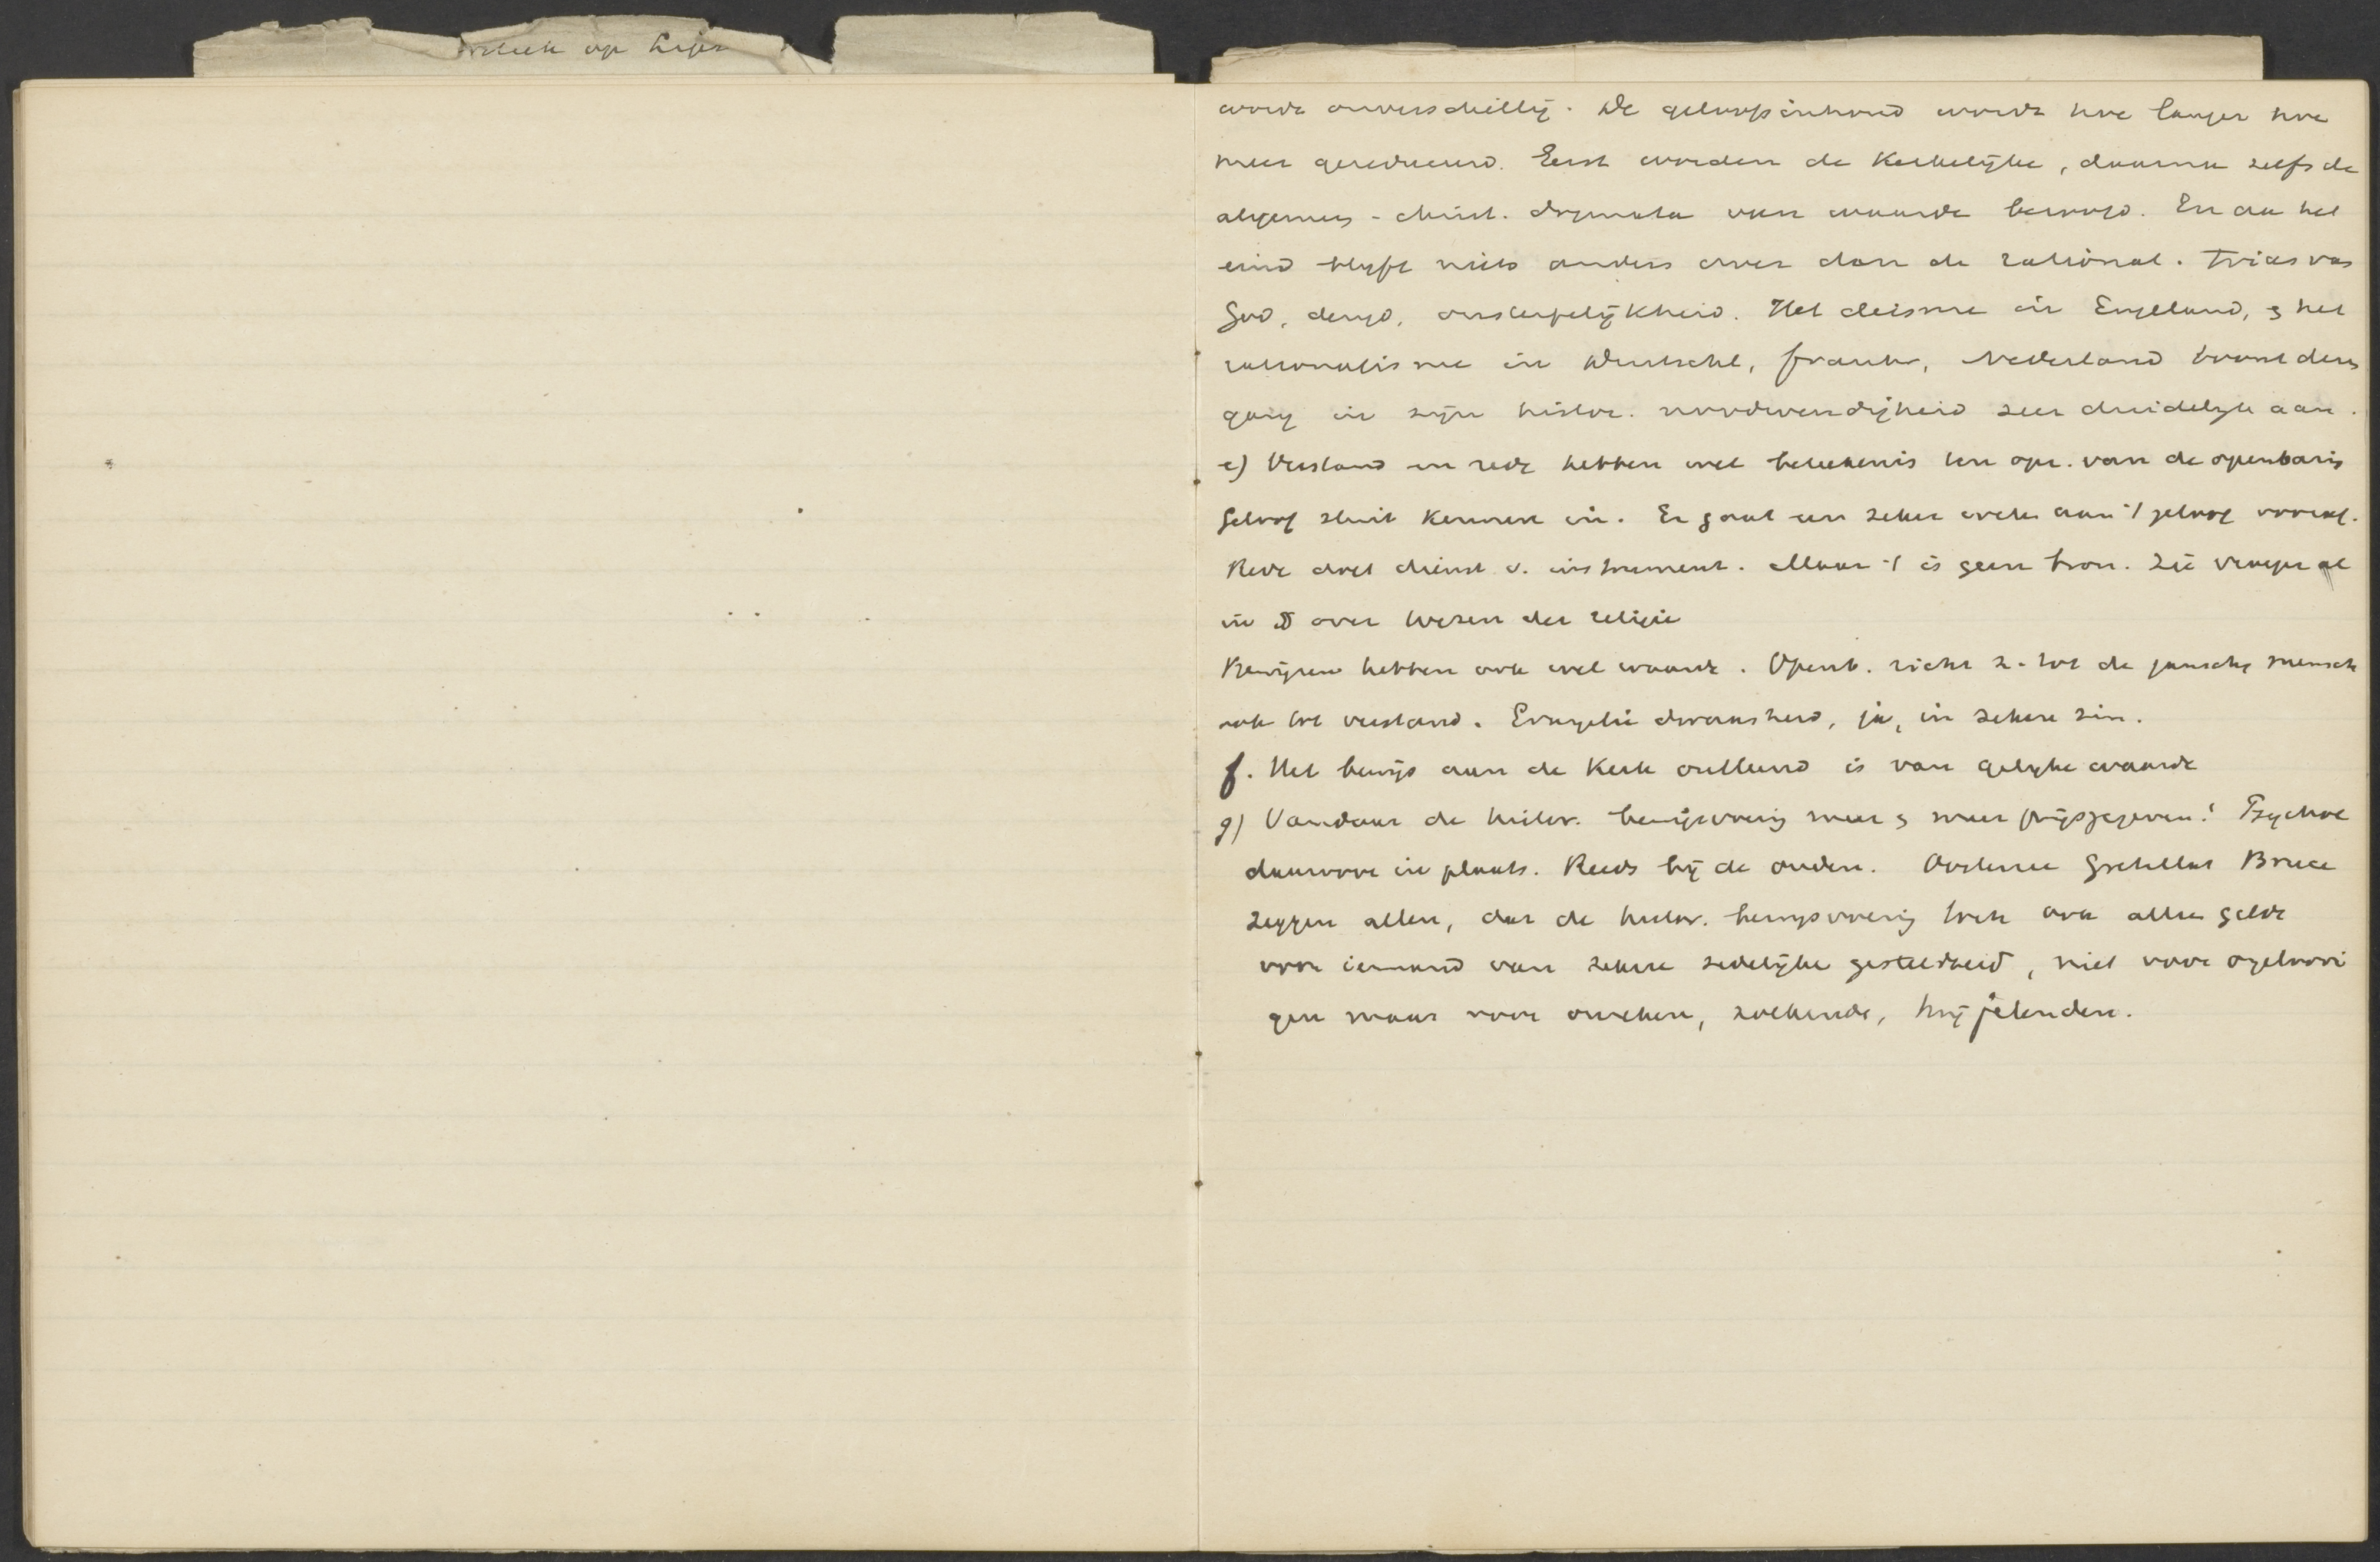 op
wordt onverschillig. De geloofsinhoud wordt hoe langer hoe
meer gereduceerd. Eerst worden de Kerkelijke, daarna zelfs de
algemeen-christ. dogmata van waarde beroofd. En aan het
eind blijft niets anders over dan de rational. Trias van
God, deugd, onsterfelijkheid. Het deisme in Engeland, & het
rationalisme in Duitschl, Frankr, Nederland toont dezen
gang in zijn histor. noodwendigheid zeer duidelijk aan.
e) Verstand en rede hebben wel betekenis ten opz. van de openbaring
Geloof sluit Kennen in. Er gaat een zeker weten aan 't geloof vooraf.
Rede doet dienst v. instrument. Maar 't is geen bron. Zie vroeger al
in over Wezen der religie
Bewijzen hebben ook wel waarde. Openb. richt z. tot de gansche mensch
ook tot verstand. Evangelie dwaasheid, ja, in zekere zin.
f. Het bewijs aan de Kerk ontleend is van gelijke waarde
g) Vandaar de histor. bewijsvoering meer & meer prijsgegeven! Psychol
daarvoor in plaats. Reeds bij de ouden. Oosterzee Gretillat Bruce
zeggen allen, dat de histor. bewijsvoering toch ook alleen geldt
voor iemand van zekere zedelijke gesteldheid, niet voor ongeloovi
gen maar voor onvaste, zoekende, twijfelenden.